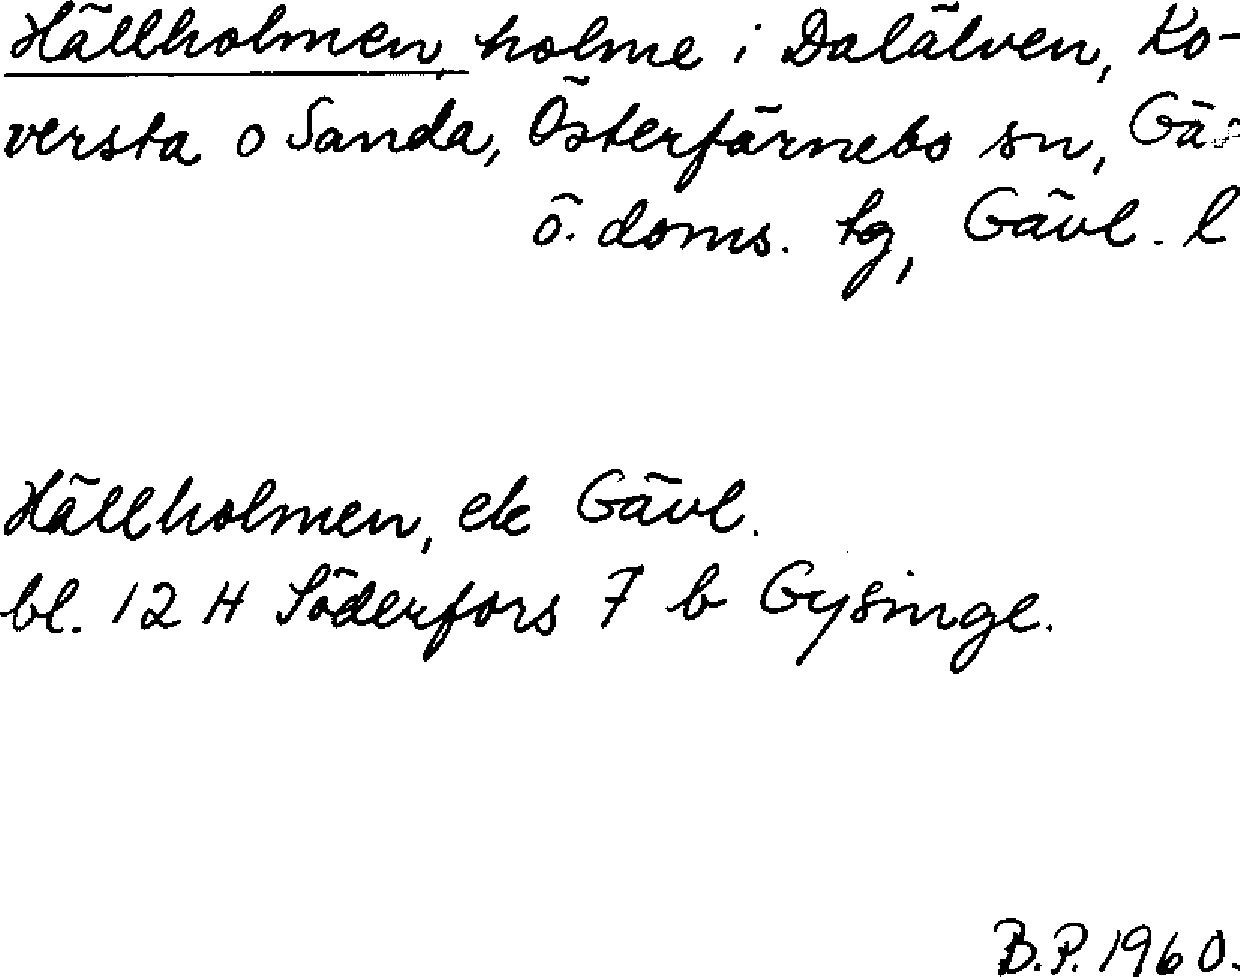 Hällholmen, holme i Dalälven, Ko-
versta o Sanda, Österfärnebo sn, Gä
ö. doms. tg, Gävl. l
Hällholmen, ek Gävl.
bl. 12 H Söderfors 7 b Gysinge.
B.P. 1960.